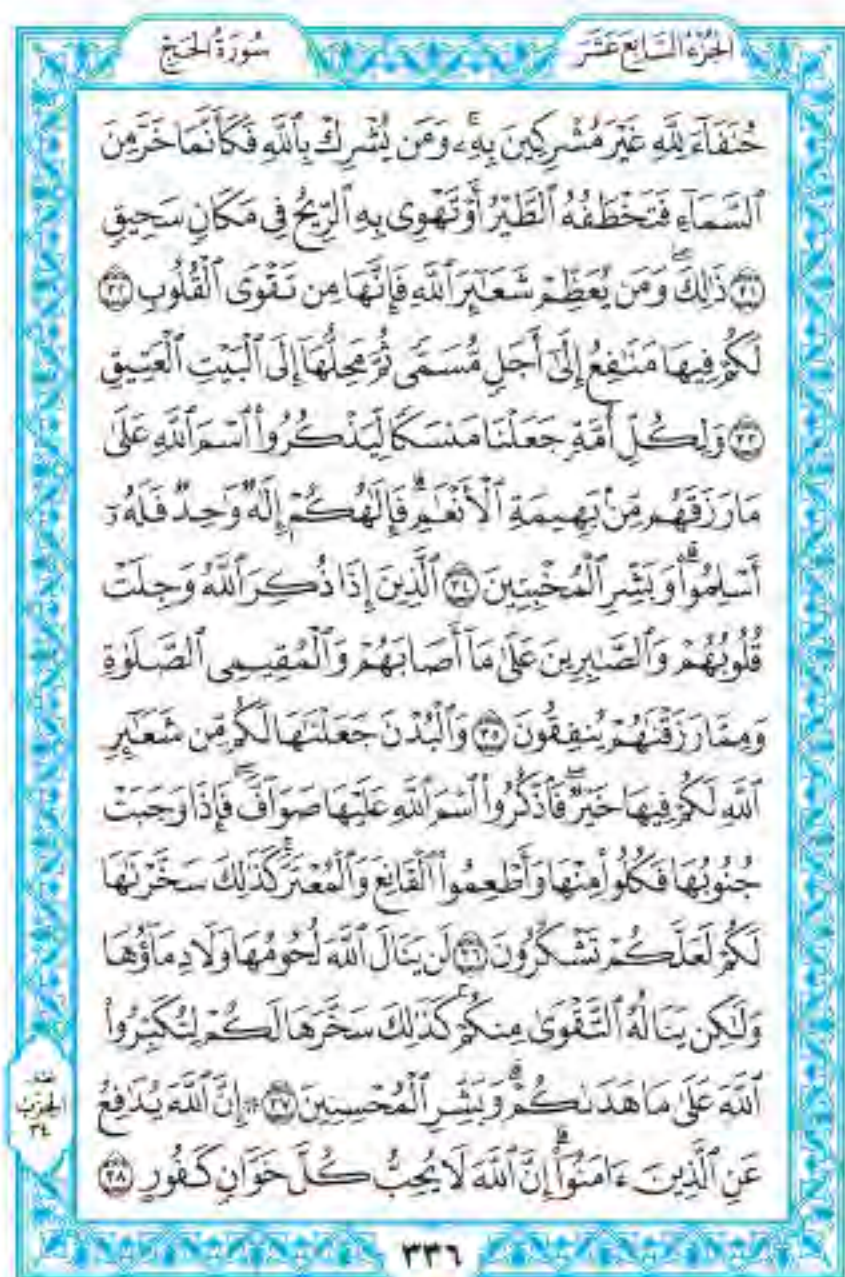 الجُزْءُ السَّابِعَ عَشَرَ
سُورَةُ الحَجّ
حُنَفَآءَ لِلَّهِ غَيْرَ مُشْرِكِينَ بِهِۦۚ وَمَن يُشْرِكْ بِٱللَّهِ فَكَأَنَّمَا خَرَّ مِنَ
ٱلسَّمَآءِ فَتَخْطَفُهُ ٱلطَّيْرُ أَوْ تَهْوِى بِهِ ٱلرِّيحُ فِى مَكَانٍ سَحِيقٍ
٣١ ذَٰلِكَۖ وَمَن يُعَظِّمْ شَعَٰٓئِرَ ٱللَّهِ فَإِنَّهَا مِن تَقْوَى ٱلْقُلُوبِ ٣٢
لَكُمْ فِيهَا مَنَٰفِعُ إِلَىٰٓ أَجَلٍ مُّسَمًّى ثُمَّ مَحِلُّهَآ إِلَى ٱلْبَيْتِ ٱلْعَتِيقِ
٣٣ وَلِكُلِّ أُمَّةٍ جَعَلْنَا مَنسَكًا لِّيَذْكُرُوا۟ ٱسْمَ ٱللَّهِ عَلَىٰ
مَا رَزَقَهُم مِّنۢ بَهِيمَةِ ٱلْأَنْعَٰمِۗ فَإِلَٰهُكُمْ إِلَٰهٌ وَٰحِدٌ فَلَهُۥٓ
أَسْلِمُوا۟ۗ وَبَشِّرِ ٱلْمُخْبِتِينَ ٣٤ ٱلَّذِينَ إِذَا ذُكِرَ ٱللَّهُ وَجِلَتْ
قُلُوبُهُمْ وَٱلصَّٰبِرِينَ عَلَىٰ مَآ أَصَابَهُمْ وَٱلْمُقِيمِى ٱلصَّلَوٰةِ
وَمِمَّا رَزَقْنَٰهُمْ يُنفِقُونَ ٣٥ وَٱلْبُدْنَ جَعَلْنَٰهَا لَكُم مِّن شَعَٰٓئِرِ
ٱللَّهِ لَكُمْ فِيهَا خَيْرٌۖ فَٱذْكُرُوا۟ ٱسْمَ ٱللَّهِ عَلَيْهَا صَوَآفَّۖ فَإِذَا وَجَبَتْ
جُنُوبُهَا فَكُلُوا۟ مِنْهَا وَأَطْعِمُوا۟ ٱلْقَانِعَ وَٱلْمُعْتَرَّۚ كَذَٰلِكَ سَخَّرْنَٰهَا
لَكُمْ لَعَلَّكُمْ تَشْكُرُونَ ٣٦ لَن يَنَالَ ٱللَّهَ لُحُومُهَا وَلَا دِمَآؤُهَا
وَلَٰكِن يَنَالُهُ ٱلتَّقْوَىٰ مِنكُمْۚ كَذَٰلِكَ سَخَّرَهَا لَكُمْ لِتُكَبِّرُوا۟
ٱللَّهَ عَلَىٰ مَا هَدَىٰكُمْۗ وَبَشِّرِ ٱلْمُحْسِنِينَ ٣٧ ۞ إِنَّ ٱللَّهَ يُدَٰفِعُ
عَنِ ٱلَّذِينَ ءَامَنُوٓا۟ۗ إِنَّ ٱللَّهَ لَا يُحِبُّ كُلَّ خَوَّانٍ كَفُورٍ ٣٨
نصف
الحزب
٣٤
٣٣٦